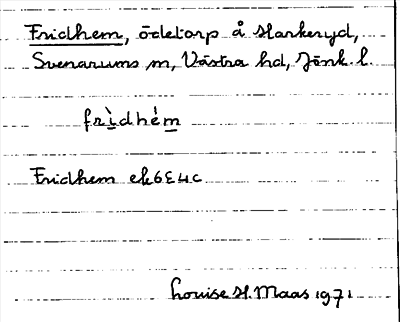 Fridhem, ödetorp å Harkeryd,
Svenarums sn, Västra hd, Jönk. l.
frìdhé̀m
Fridhem ek 6E4c
Louise H. Maas 1971